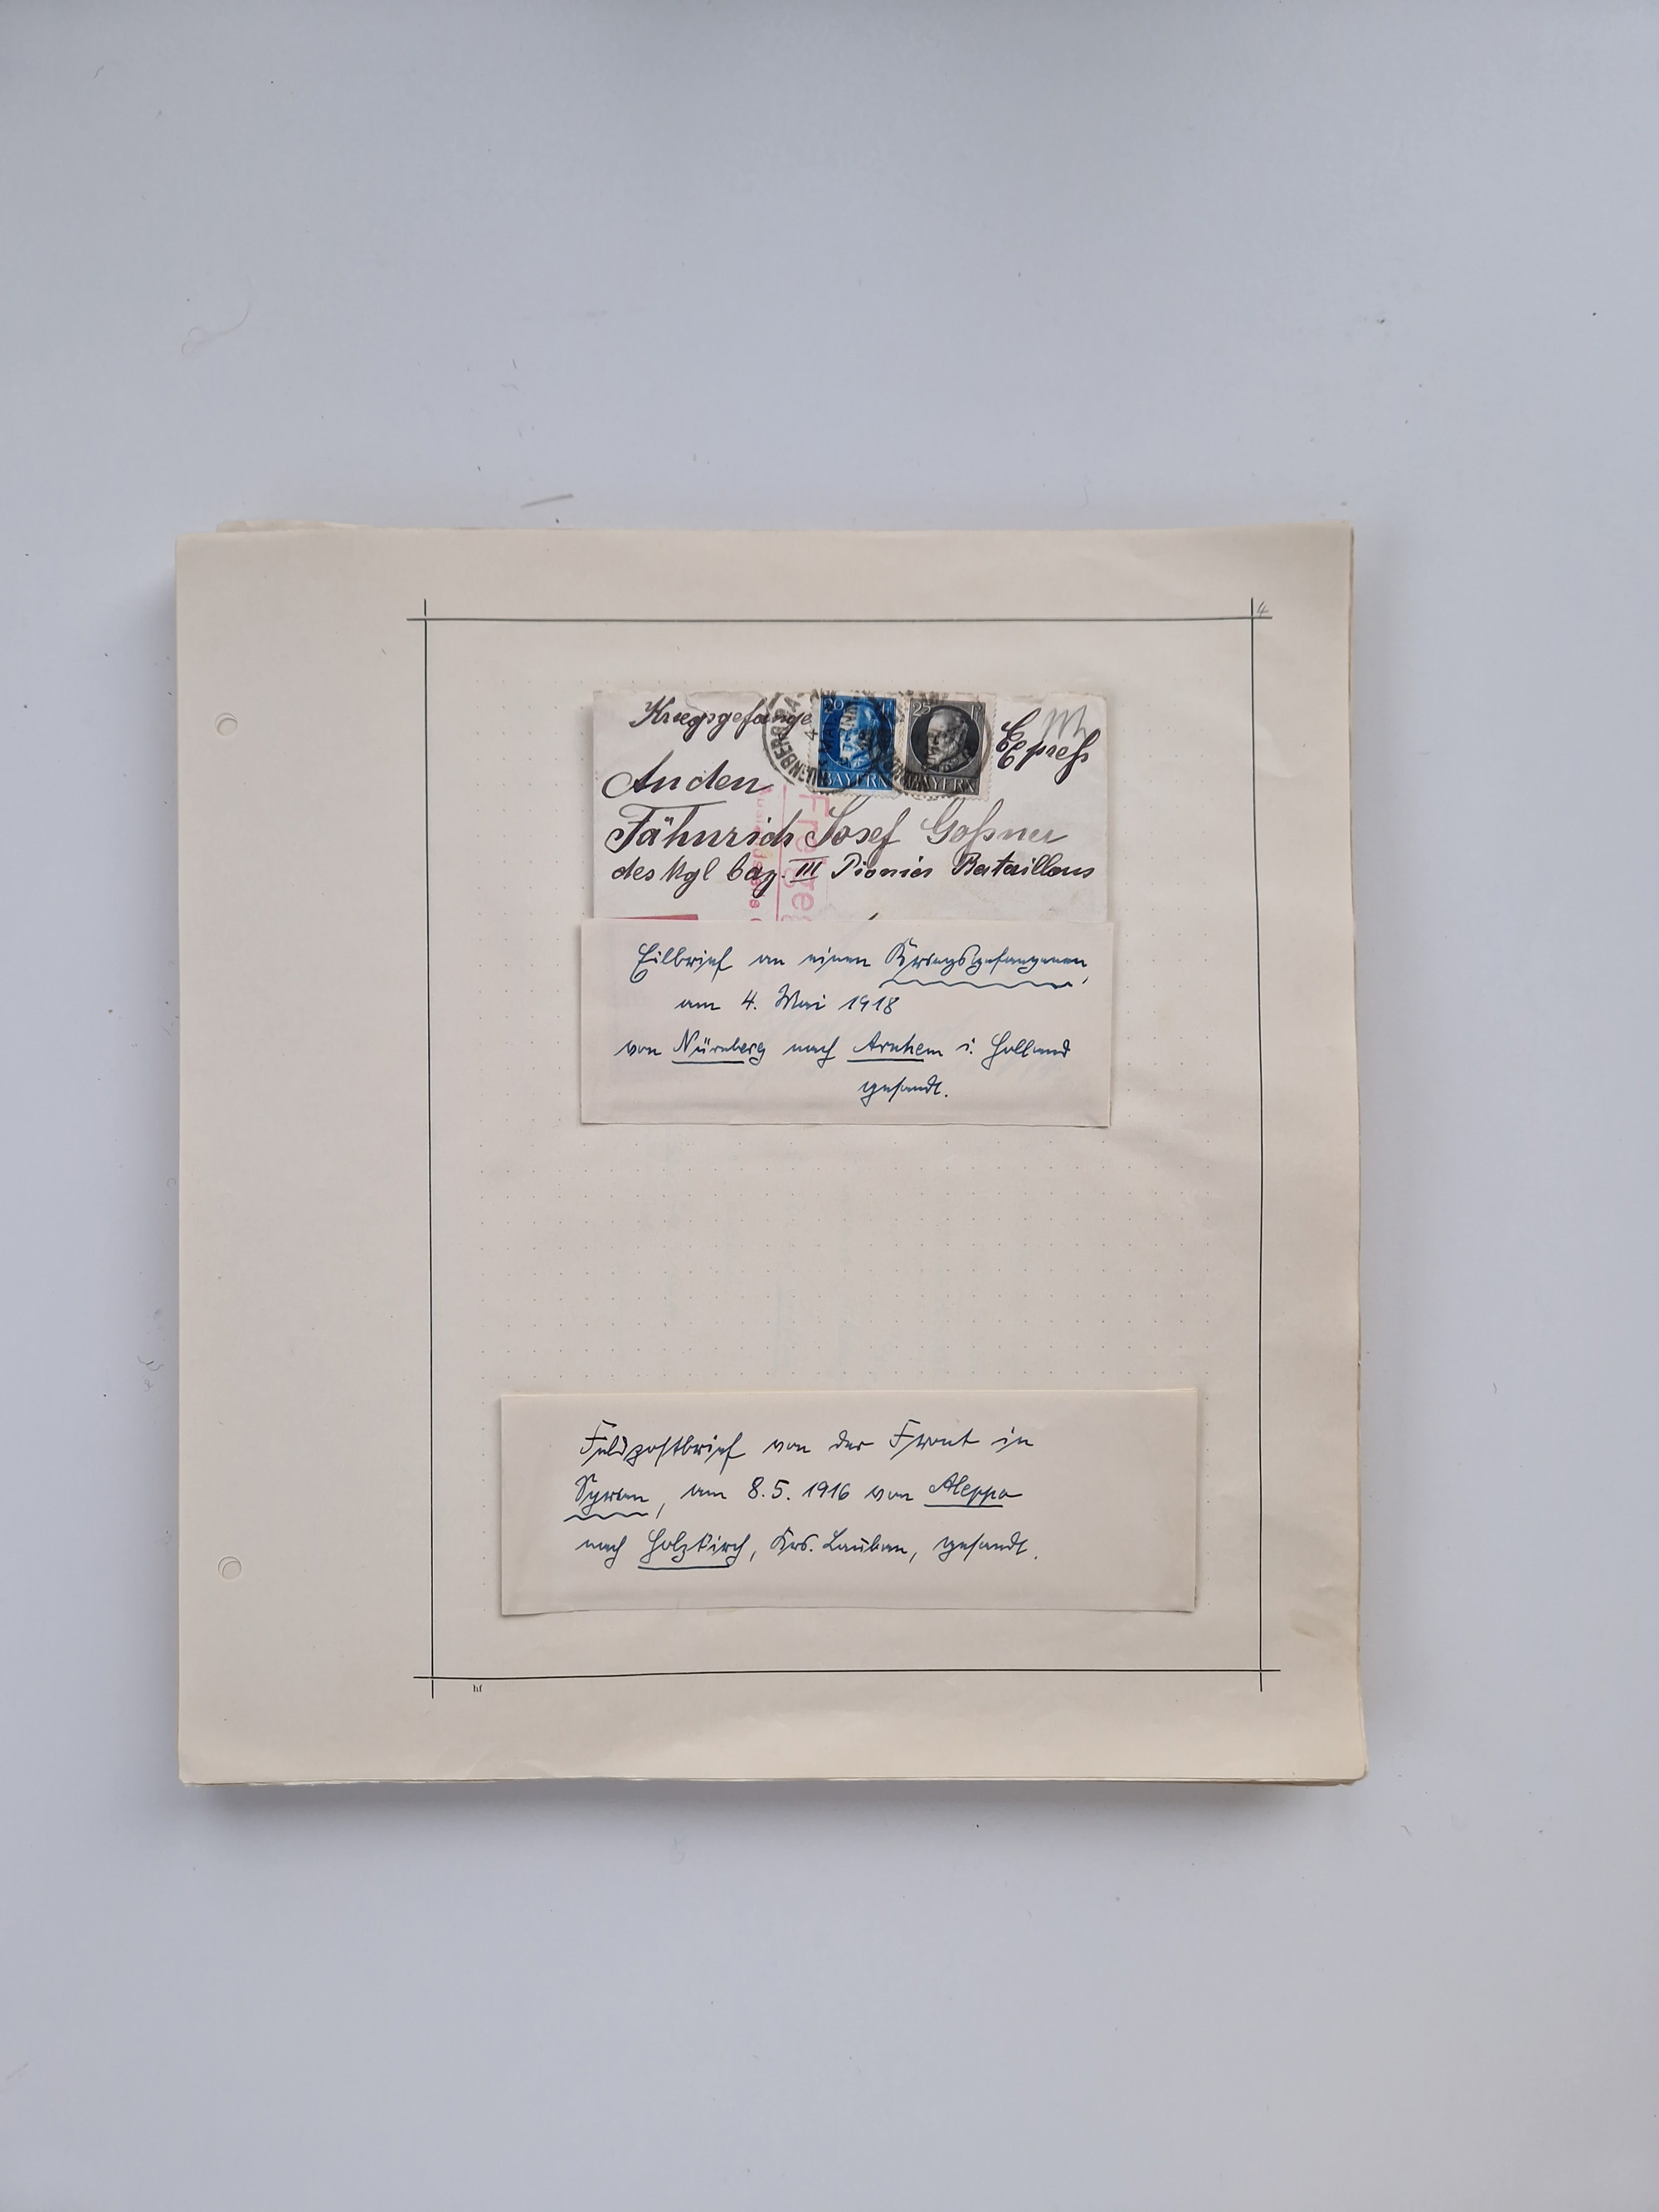 4
Kriegsgefange
20 BAYERN
25 BAYERN
Expreß
An den
Fähnrich Josef Goßner
des Kgl bay. III Pionier Bataillons
Freige
Eilbrief an einen Kriegsgefangenen,
am 4. Mai 1918
von Nürnberg nach Arnhem i. Holland
gesandt.
Feldpostbrief von der Front in
Syrien, am 8.5.1916 von Aleppo
nach Holzkirch, Krs. Lauban, gesandt.
hf